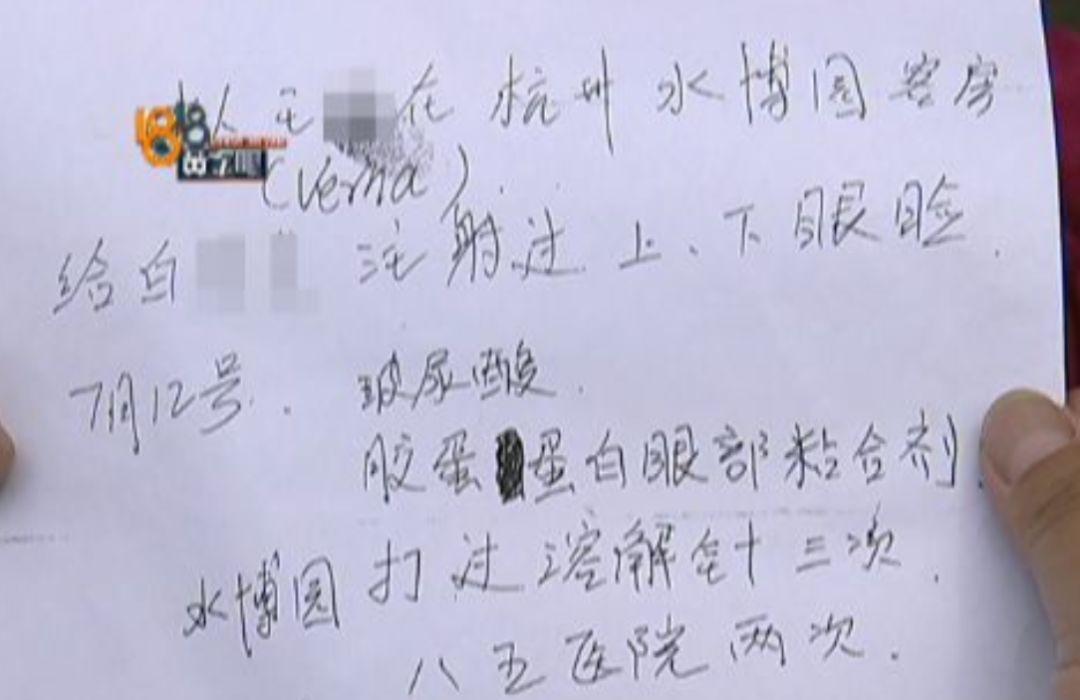 本人毛 在杭州水博园客房
(Verna)
给白 注射过上、下眼睑.
7月12号. 玻尿酸.
胶蛋 蛋白眼部粘合剂.
水博园 打过溶解针三次.
八五医院两次.